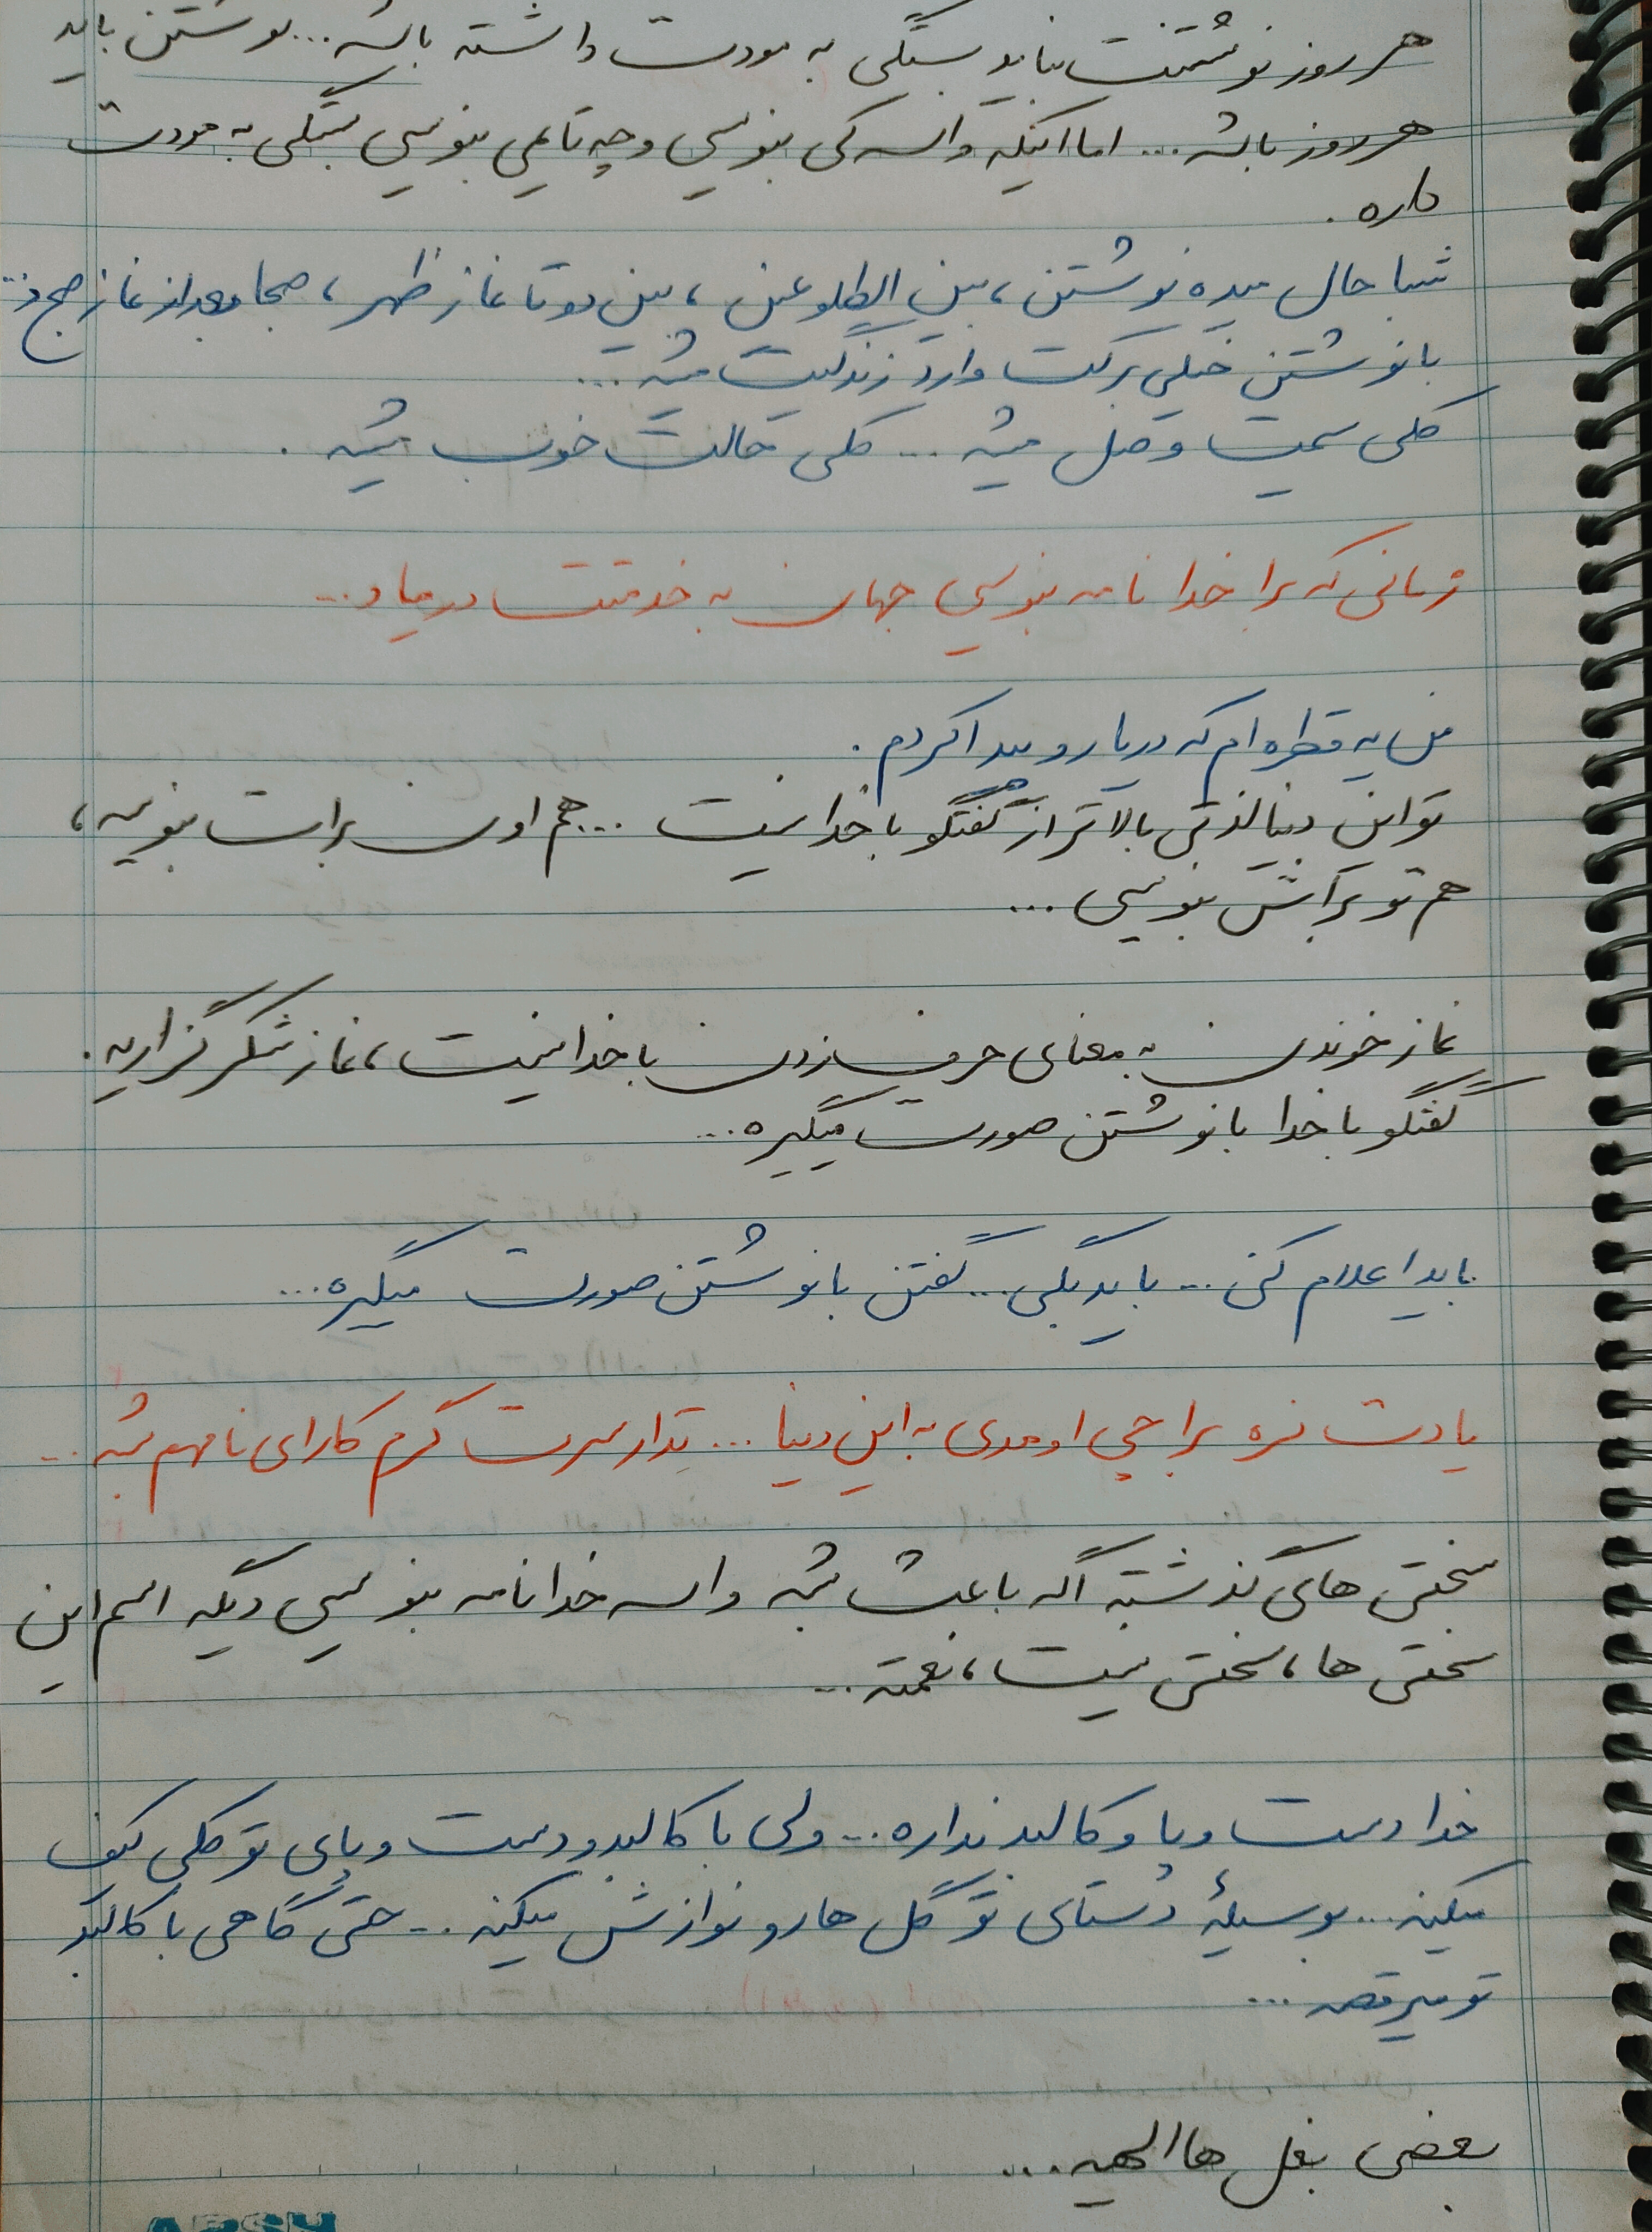 هر روز نوشتنت نباید بستگی به مودت داشته باشه... نوشتن باید
هر روز باشه... اما اینکه واسه کی بنویسی و چه تایمی بنویسی بستگی به مودت
داره.
شبا حال میده نوشتن، بین الطلوعین، بین دو تا نماز ظهر، صبحا بعد از نماز صبح و...
با نوشتن خیلی برکت وارد زندگیت میشه...
کلی سمیت وصل میشه... کلی حالت خوب میشه.
زمانی که برا خدا نامه بنویسی جهان به خدمتت درمیاد...
من یه قطره ام که دریا رو پیدا کردم.
تو این دنیا لذتی بالاتر از گفتگو با خدا نیست... هم اون برات بنویسه،
هم تو براش بنویسی...
نماز خوندن به معنای حرف زدن با خدا نیست، نماز شکرگزاریه.
گفتگو با خدا با نوشتن صورت میگیره...
باید اعلام کنی... باید بگی... گفتن با نوشتن صورت میگیره...
یادت نره برا چی اومدی به این دنیا... نذار سرت گرم کارای نامهم بشه...
سختی های گذشته اگه باعث بشه واسه خدا نامه بنویسی دیگه اسم این
سختی ها، سختی نیست، نعمته...
خدا دست و پا و کالبد نداره... ولی با کالبد و دست و پای تو کلی کیف
میکنه... بوسیلهٔ دستای تو گل ها رو نوازش میکنه... حتی گاهی با کالبد
تو میرقصه...
بعضی بغل ها الهیه...